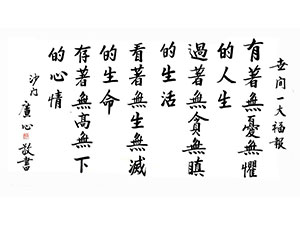 世間一大福報
有著無憂無懼
的人生
過著無貪無瞋
的生活
看著無生無滅
的生命
存著無高無下
的心情
沙門廣心敬書